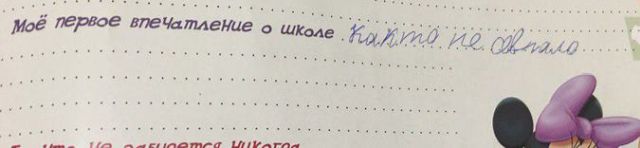 Моё первое впечатление о школе Както не овпало
То, что не забудется никогда